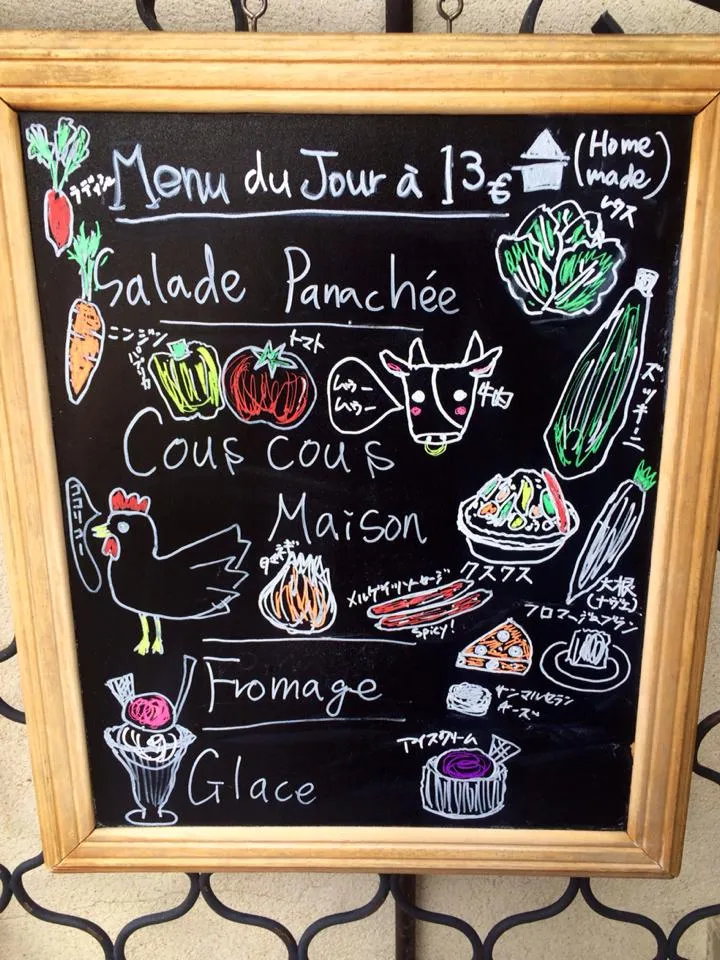 Menu du Jour à 13€
(Home made)
ラディッシュ
レタス
Salade Panachée
ニンジン
パプリカ
トマト
ムゥー
ムゥー
牛肉
ズッキーニ
Cous cous
Maison
ココリコー
クスクス
玉ネギ
メルゲイツソーセージ
spicy!
大根
(ナヴェ)
フロマージュブラン
Fromage
サンマルセラン
チーズ
アイスクリーム
Glace